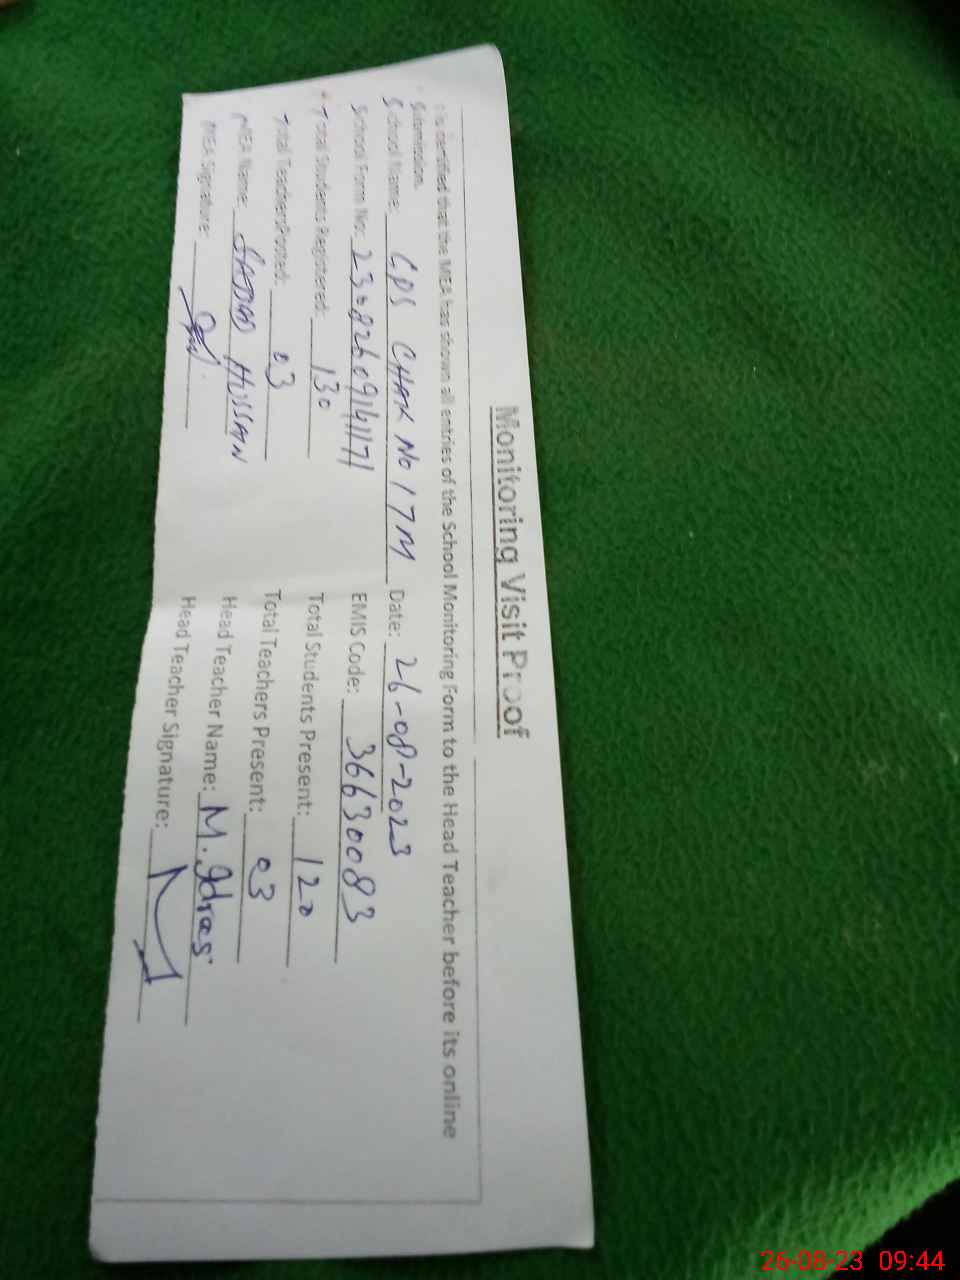 Monitoring Visit Proof
It is certified that the MEA has shown all entries of the School Monitoring Form to the Head Teacher before its online
Submission.
School Name: GPS CHAK NO 17M Date: 26-08-2023
School Form No: 23082609141171 EMIS Code: 36630083
Total Students Registered: 130 Total Students Present: 120
Total Teachers Posted: 03 Total Teachers Present: 03
MEA Name: HUSSAIN Head Teacher Name: M. Idrees
MEA Signature: Head Teacher Signature:
26-08-23 09:44